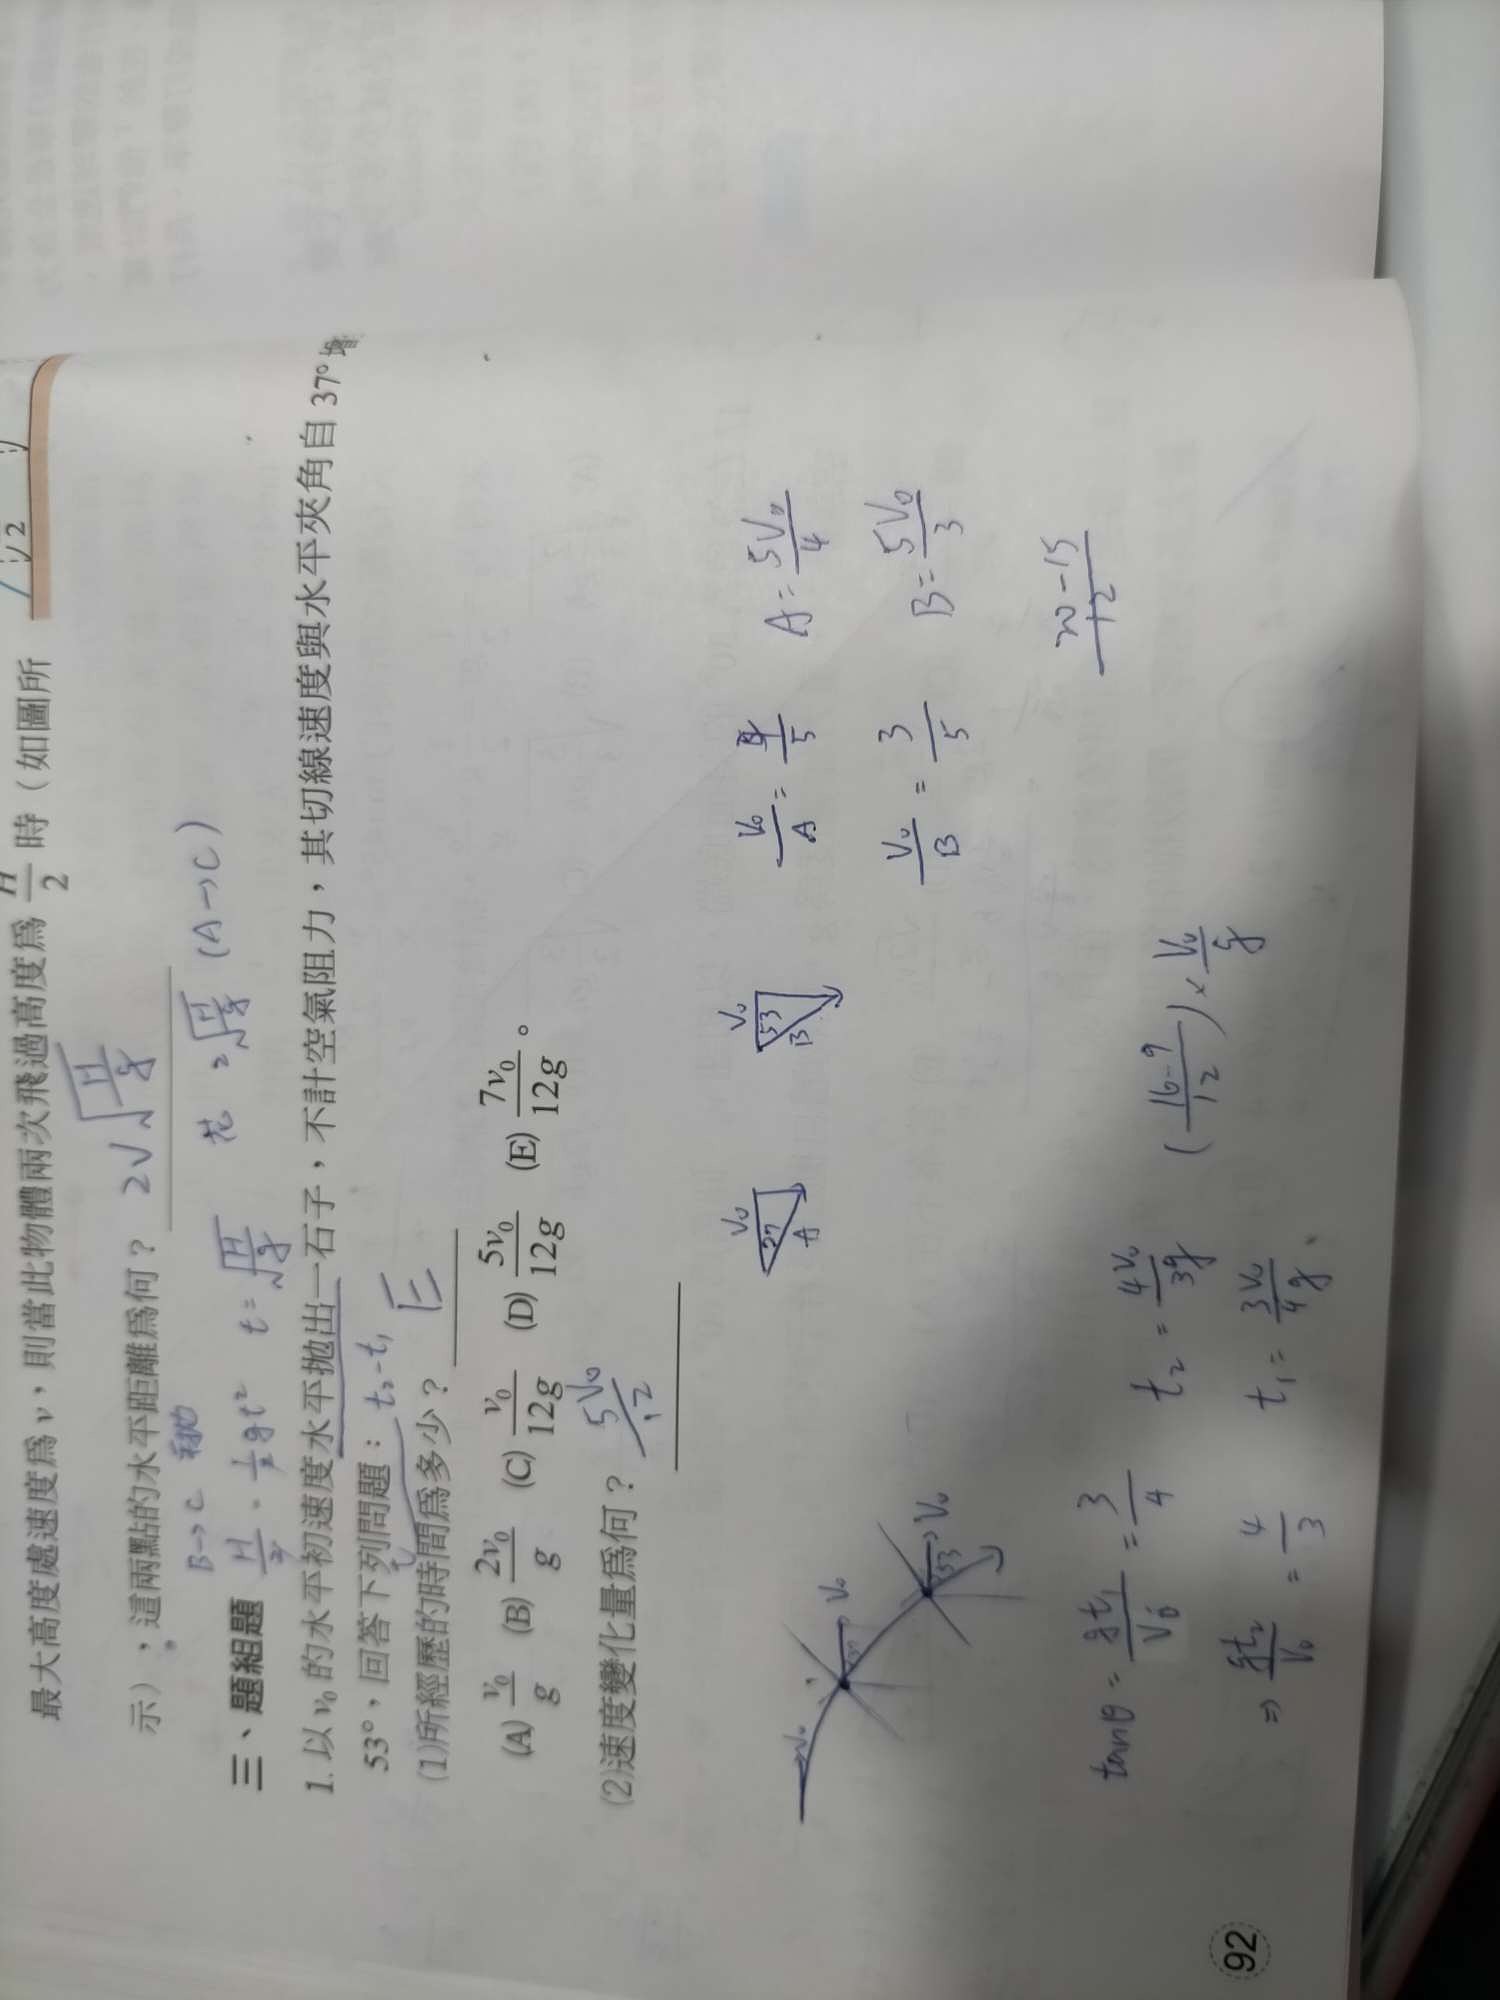 √2
最大高度處速度爲 v，則當此物體兩次飛過高度爲 H/2 時（如圖所
示），這兩點的水平距離爲何？ 2√(H/g)
B→C
H/2 = 1/2 gt² t = √(H/g) 2√(H/g) (A→C)
三、題組題
1. 以 v₀ 的水平初速度水平拋出一石子，不計空氣阻力，其切線速度與水平夾角自 37° 增
53°，回答下列問題： t₂-t₁
(1)所經歷的時間爲多少？ E
(A) v₀/g (B) 2v₀/g (C) v₀/12g (D) 5v₀/12g (E) 7v₀/12g。
(2)速度變化量爲何？ 5V₀/12
V₀ V₀ V₀
V₀ 37 A
V₀ 53 B
V₀/A = 4/5 A = 5V₀/4
V₀/B = 3/5 B = 5V₀/3
20-15/12
tanθ = gt₁/V₀ = 3/4 t₂ = 4V₀/3g
⇒ gt₂/V₀ = 4/3 t₁ = 3V₀/4g
(16-9/12) × V₀/g
92